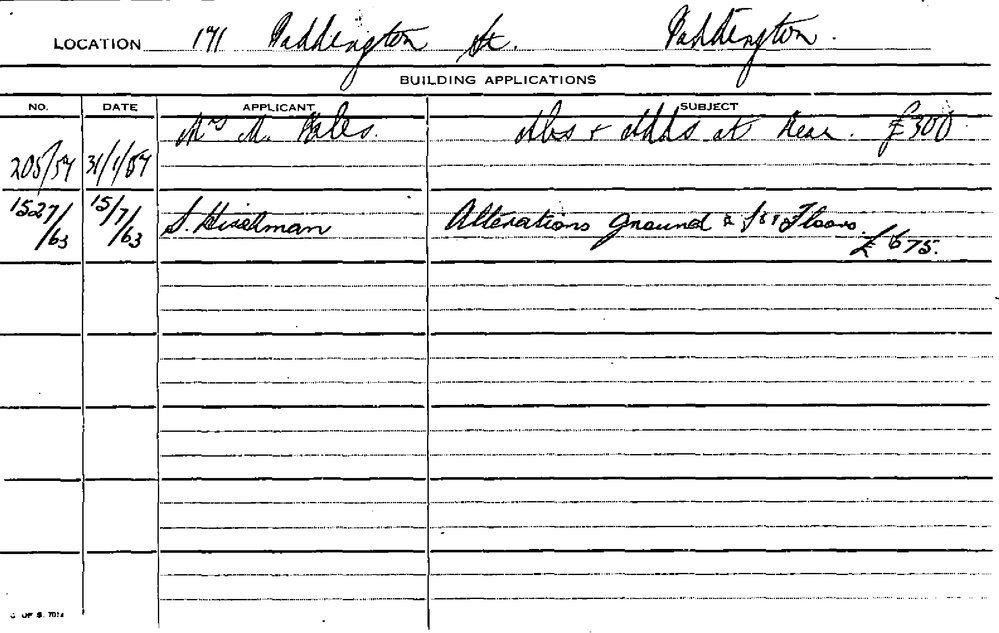 LOCATION 171 Paddington St. Paddington.
BUILDING APPLICATIONS
NO. DATE APPLICANT SUBJECT
Mrs M. Alts + Adds at Rear. £300
205/57 31/1/57
1527/63 15/7/63 S. Alterations ground & 1st Floors.
£675.